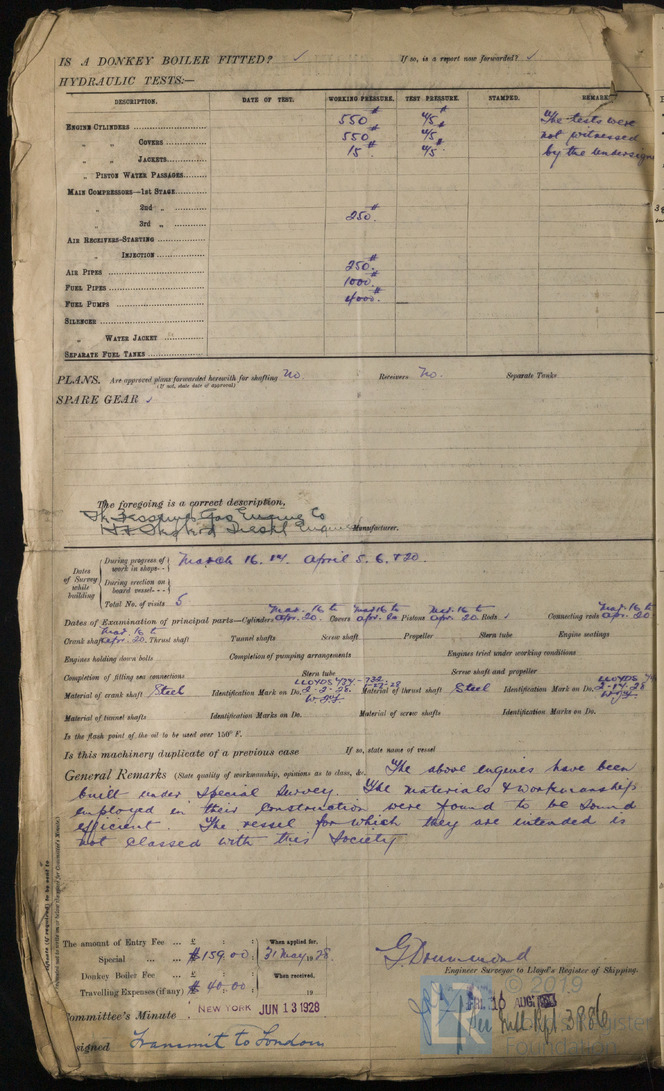 IS A DONKEY BOILER FITTED? ✓ If so, is a report now forwarded? ✓
HYDRAULIC TESTS:—
DESCRIPTION. DATE OF TEST. WORKING PRESSURE. TEST PRESSURE. STAMPED. REMARK
ENGINE CYLINDERS 550# The tests were
„ „ COVERS 550# not witnessed
„ „ JACKETS 15# by the undersign
„ PISTON WATER PASSAGES
MAIN COMPRESSORS—1ST STAGE
„ 2nd „
„ 3rd „ 250#
AIR RECEIVERS-STARTING
„ INJECTION
AIR PIPES 250#
FUEL PIPES 1000#
FUEL PUMPS 4000# —
SILENCER
„ WATER JACKET
SEPARATE FUEL TANKS
PLANS. Are approved plans forwarded herewith for shafting No. Receivers No. Separate Tanks
(If not, state date of approval)
SPARE GEAR ✓
The foregoing is a correct description,
Gas Engine Co
Diesel Engine Manufacturer.
Dates of Survey while building
During progress of work in shops-- March 16. 19. April 5. 6. & 20.
During erection on board vessel---
Total No. of visits 5
Dates of Examination of principal parts—Cylinders Mar. 16 to Apr. 20. Covers Mar 16 to Apr. 20 Pistons Mar. 16 to Apr. 20 Rods ✓ Connecting rods Mar. 16 to Apr 20
Crank shaft Mar. 16 to Apr. 20. Thrust shaft Tunnel shafts Screw shaft Propeller Stern tube Engine seatings
Engines holding down bolts Completion of pumping arrangements Engines tried under working conditions
Completion of fitting sea connections Stern tube Screw shaft and propeller
Material of crank shaft Steel Identification Mark on Do. LLOYDS Material of thrust shaft Steel Identification Mark on Do. LLOYDS
Material of tunnel shafts Identification Marks on Do. Material of screw shafts Identification Marks on Do.
Is the flash point of the oil to be used over 150° F.
Is this machinery duplicate of a previous case If so, state name of vessel
General Remarks (State quality of workmanship, opinions as to class, &c. The above engines have been
built under Special Survey. The materials & workmanship
employed in their construction were found to be sound
efficient. The vessel for which they are intended is
not classed with this Society
The amount of Entry Fee ... £ : : When applied for,
Special ... ... $ 159.00 31 May 1928.
Donkey Boiler Fee ... £ : : When received,
Travelling Expenses (if any) $ 40.00 19
G. Drummond
Engineer Surveyor to Lloyd's Register of Shipping.
Committee's Minute NEW YORK JUN 13 1928
FRI. AUG
signed Transmit to London
© 2019
LR
Register
Foundation